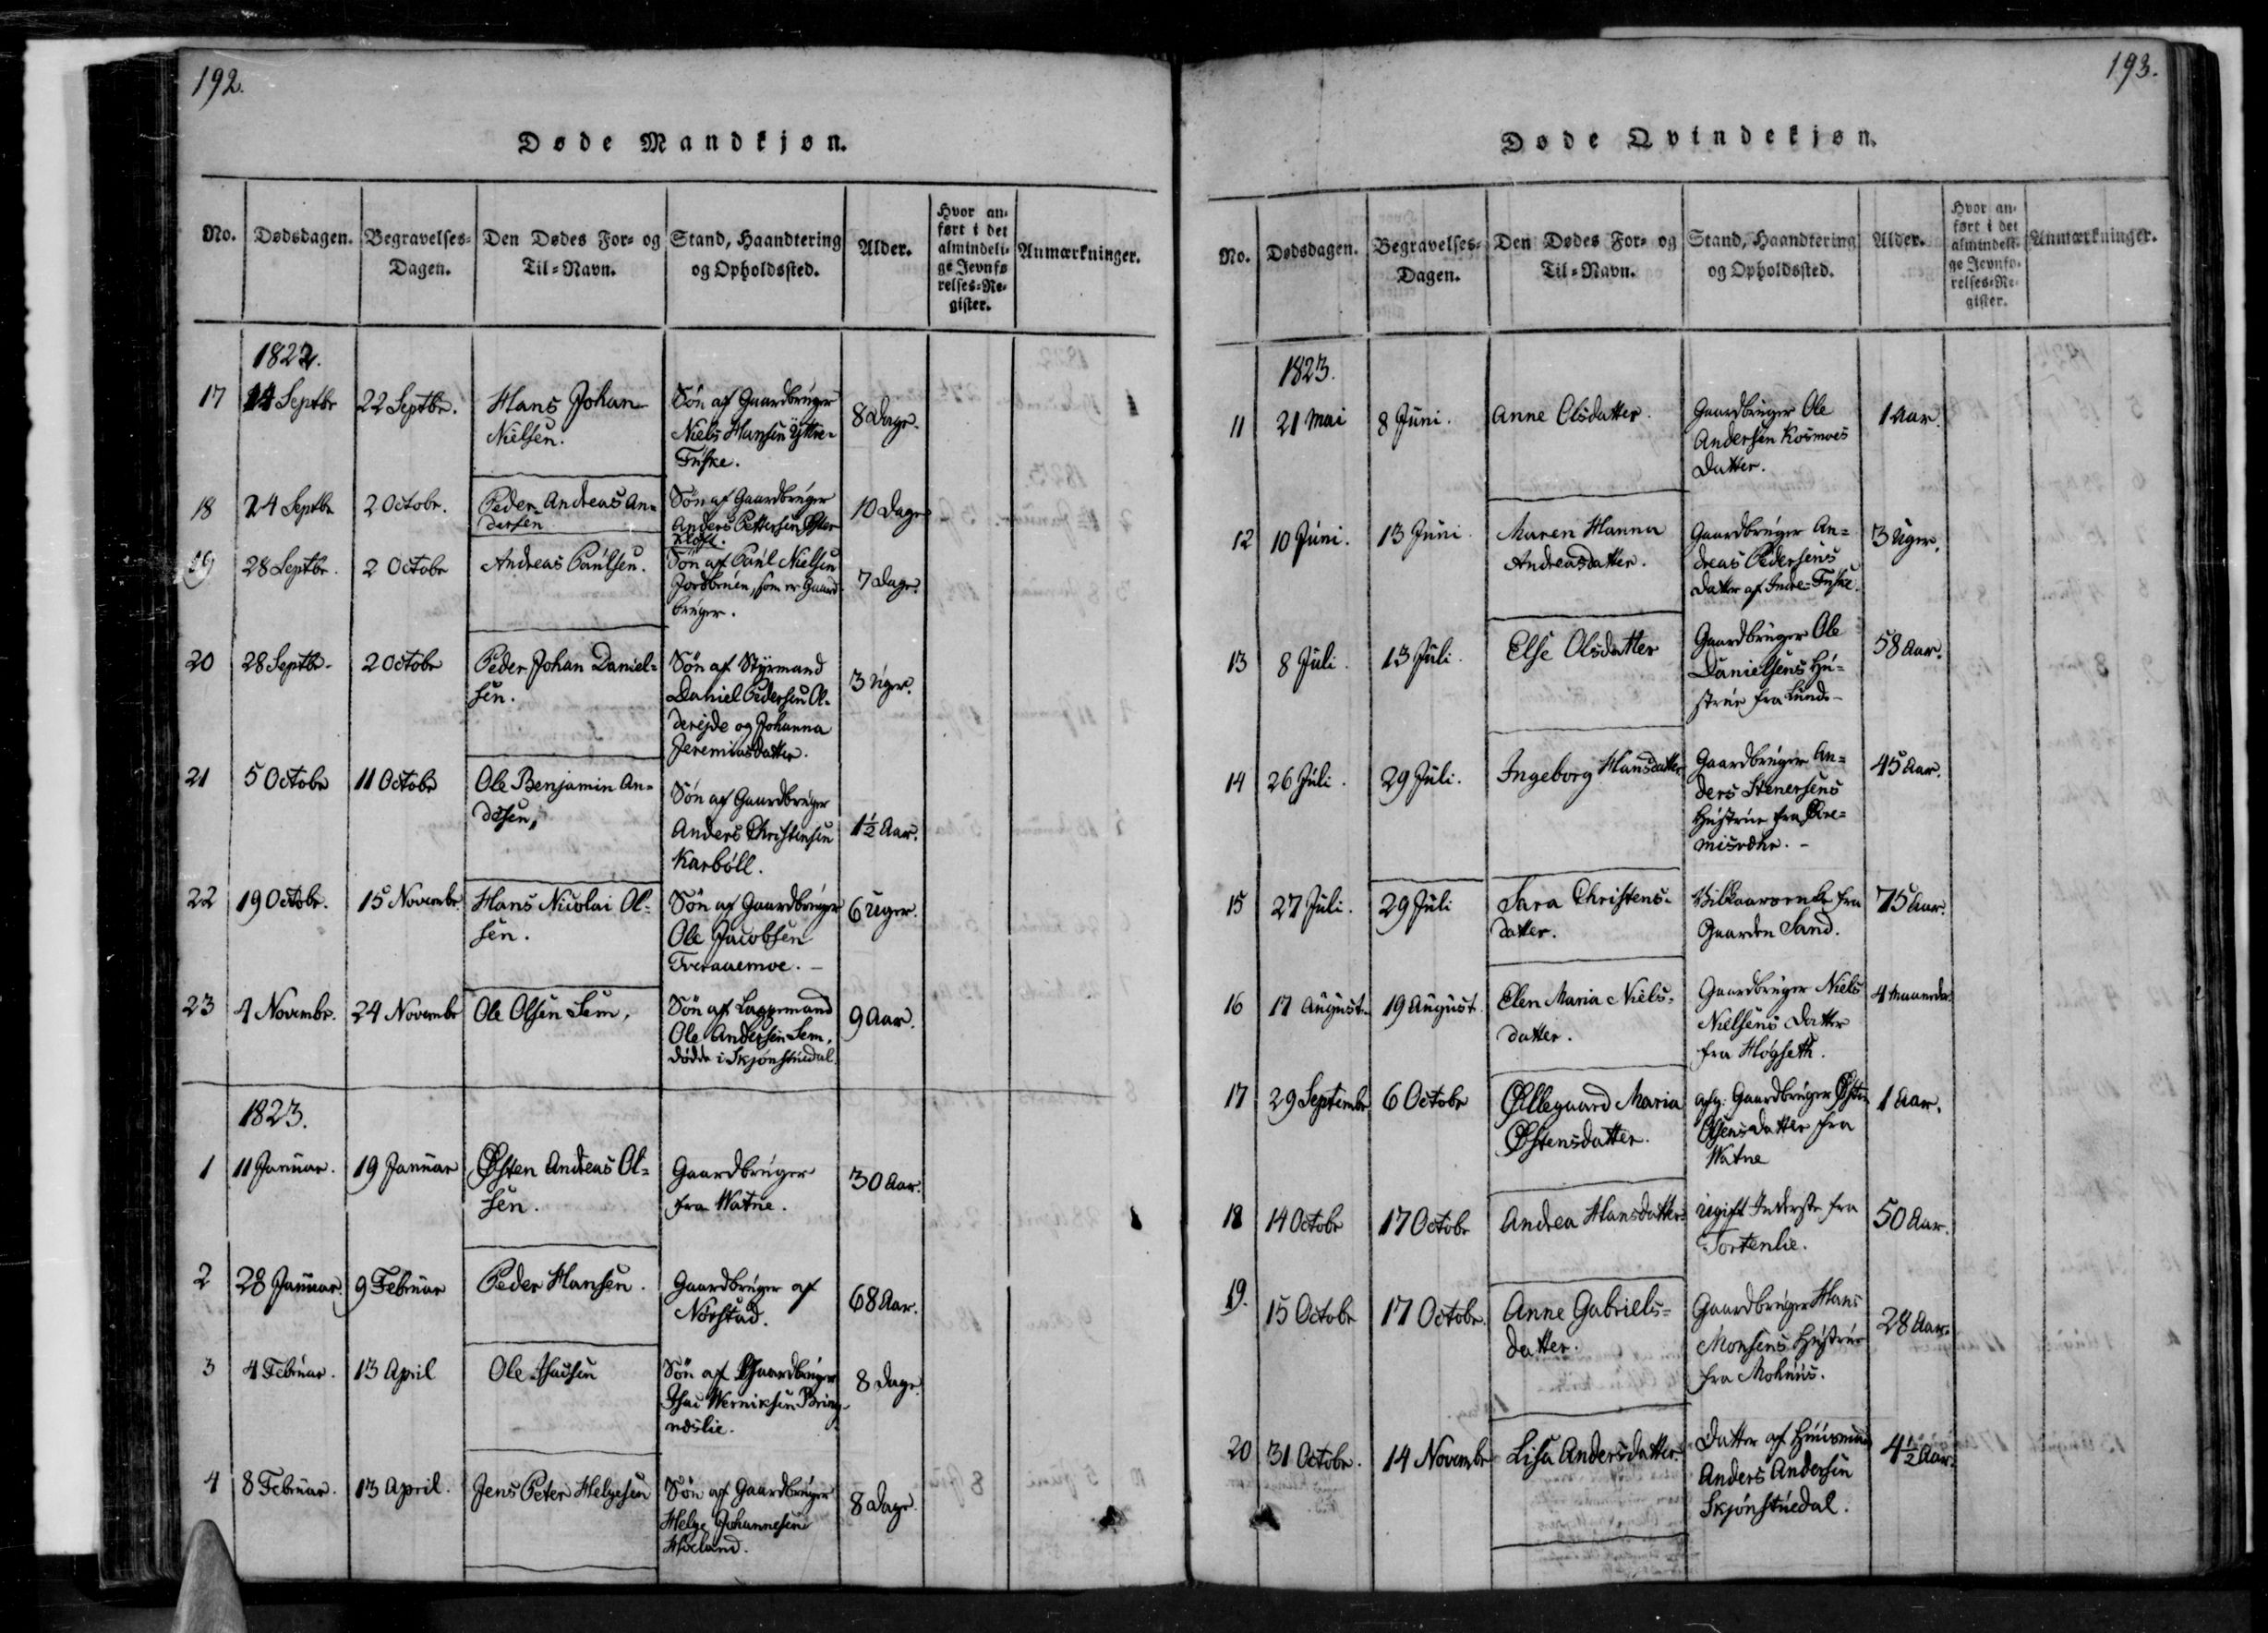 192.
Døde Mandkjøn.
No. Dødsdagen. Begravelses-Dagen. Den Dødes For- og Til-Navn. Stand, Haandtering og Opholdssted. Alder. Hvor anført i det almindelige Jevnførelses-Register. Anmærkninger.
1822.
17 14 Septbr 22 Septbr. Hans Johan Nielsen. Søn af Gaardbruger Niels Hansen Yttre-Fuske. 8 Dage.
18 24 Septbr 2 Octobr. Peder Andreas Andersen Søn af Gaardbruger Anders Pettersen Øster Kløft. 10 Dage
19 28 Septbr. 2 Octobr Andreas Paulsen. Søn af Paul Nielsen Jordbruen, som er Gaardbruger. 7 Dage.
20 28 Septbr. 2 Octobr Peder Johan Danielsen. Søn af Styrmand Daniel Pedersen Oldereide og Johanna Jeremiasdatter. 3 Uger.
21 5 Octobr 11 Octobr Ole Benjamin Andersen, Søn af Gaardbruger Anders Christensen Karbøll. 1½ Aar.
22 19 Octobr. 15 Novembr. Hans Nicolai Olsen. Søn af Gaardbruger Ole Jacobsen Tveraaemoe. 6 Uger.
23 4 Novembr. 24 Novembr Ole Olsen Sem, Søn af Lappemand Ole Andersen Sem, døde i Skjønstuedal. 9 Aar.
1823.
1 11 Januar. 19 Januar Østen Andreas Olsen. Gaardbruger fra Watne. 30 Aar.
2 28 Januar. 9 Februar Peder Hansen. Gaardbruger af Nørstad. 68 Aar.
3 4 Februar. 13 April Ole Isacsen Søn af Gaardbruger Isac Werniksen Bringneslie. 8 Dage
4 8 Februar. 13 April. Jens Peter Helgesen Søn af Gaardbruger Helge Johannesen 8 Dage.
193.
Døde Qvindekjøn.
No. Dødsdagen. Begravelses-Dagen. Den Dødes For- og Til-Navn. Stand, Haandtering og Opholdssted. Alder. Hvor anført i det almindelige Jevnførelses-Register. Anmærkninger.
1823.
11 21 Mai 8 Juni. Anne Olsdatter. Gaardbruger Ole Andersen Kosmoes Datter. 1 Aar.
12 10 Juni. 13 Juni. Maren Hanna Andreasdatter. Gaardbruger Andreas Pedersens Datter af Indre-Fuske. 3 Uger.
13 8 Juli. 13 Juli. Else Olsdatter Gaardbruger Ole Danielsens Hustrue fra Lund. 58 Aar.
14 26 Juli. 29 Juli. Ingeborg Hansdatter Gaardbruger Anders Stenersens Hustrue fra 45 Aar.
15 27 Juli. 29 Juli Sara Christensdatter. Vilkaarsenke fra Gaarden Sand. 75 Aar.
16 17 August. 19 August. Elen Maria Nielsdatter. Gaardbruger Niels Nielsens Datter fra Høgseth. 4 Maaneder.
17 29 Septembr 6 Octobr Øllegaard Maria Østensdatter. afg: Gaardbruger Østen Olsens Datter fra Watne 1 Aar.
18 14 Octobr 17 Octobr Andrea Hansdatter. ugift Inderste fra Tortenlie. 50 Aar.
19. 15 Octobr 17 Octobr. Anne Gabrielsdatter. Gaardbruger Hans Monsens Hustrue fra Mohuus. 28 Aar.
20 31 Octobr. 14 Novembr Lisa Andersdatter. Datter af Huusmand Anders Andersen Skjønstuedal. 4½ Aar.